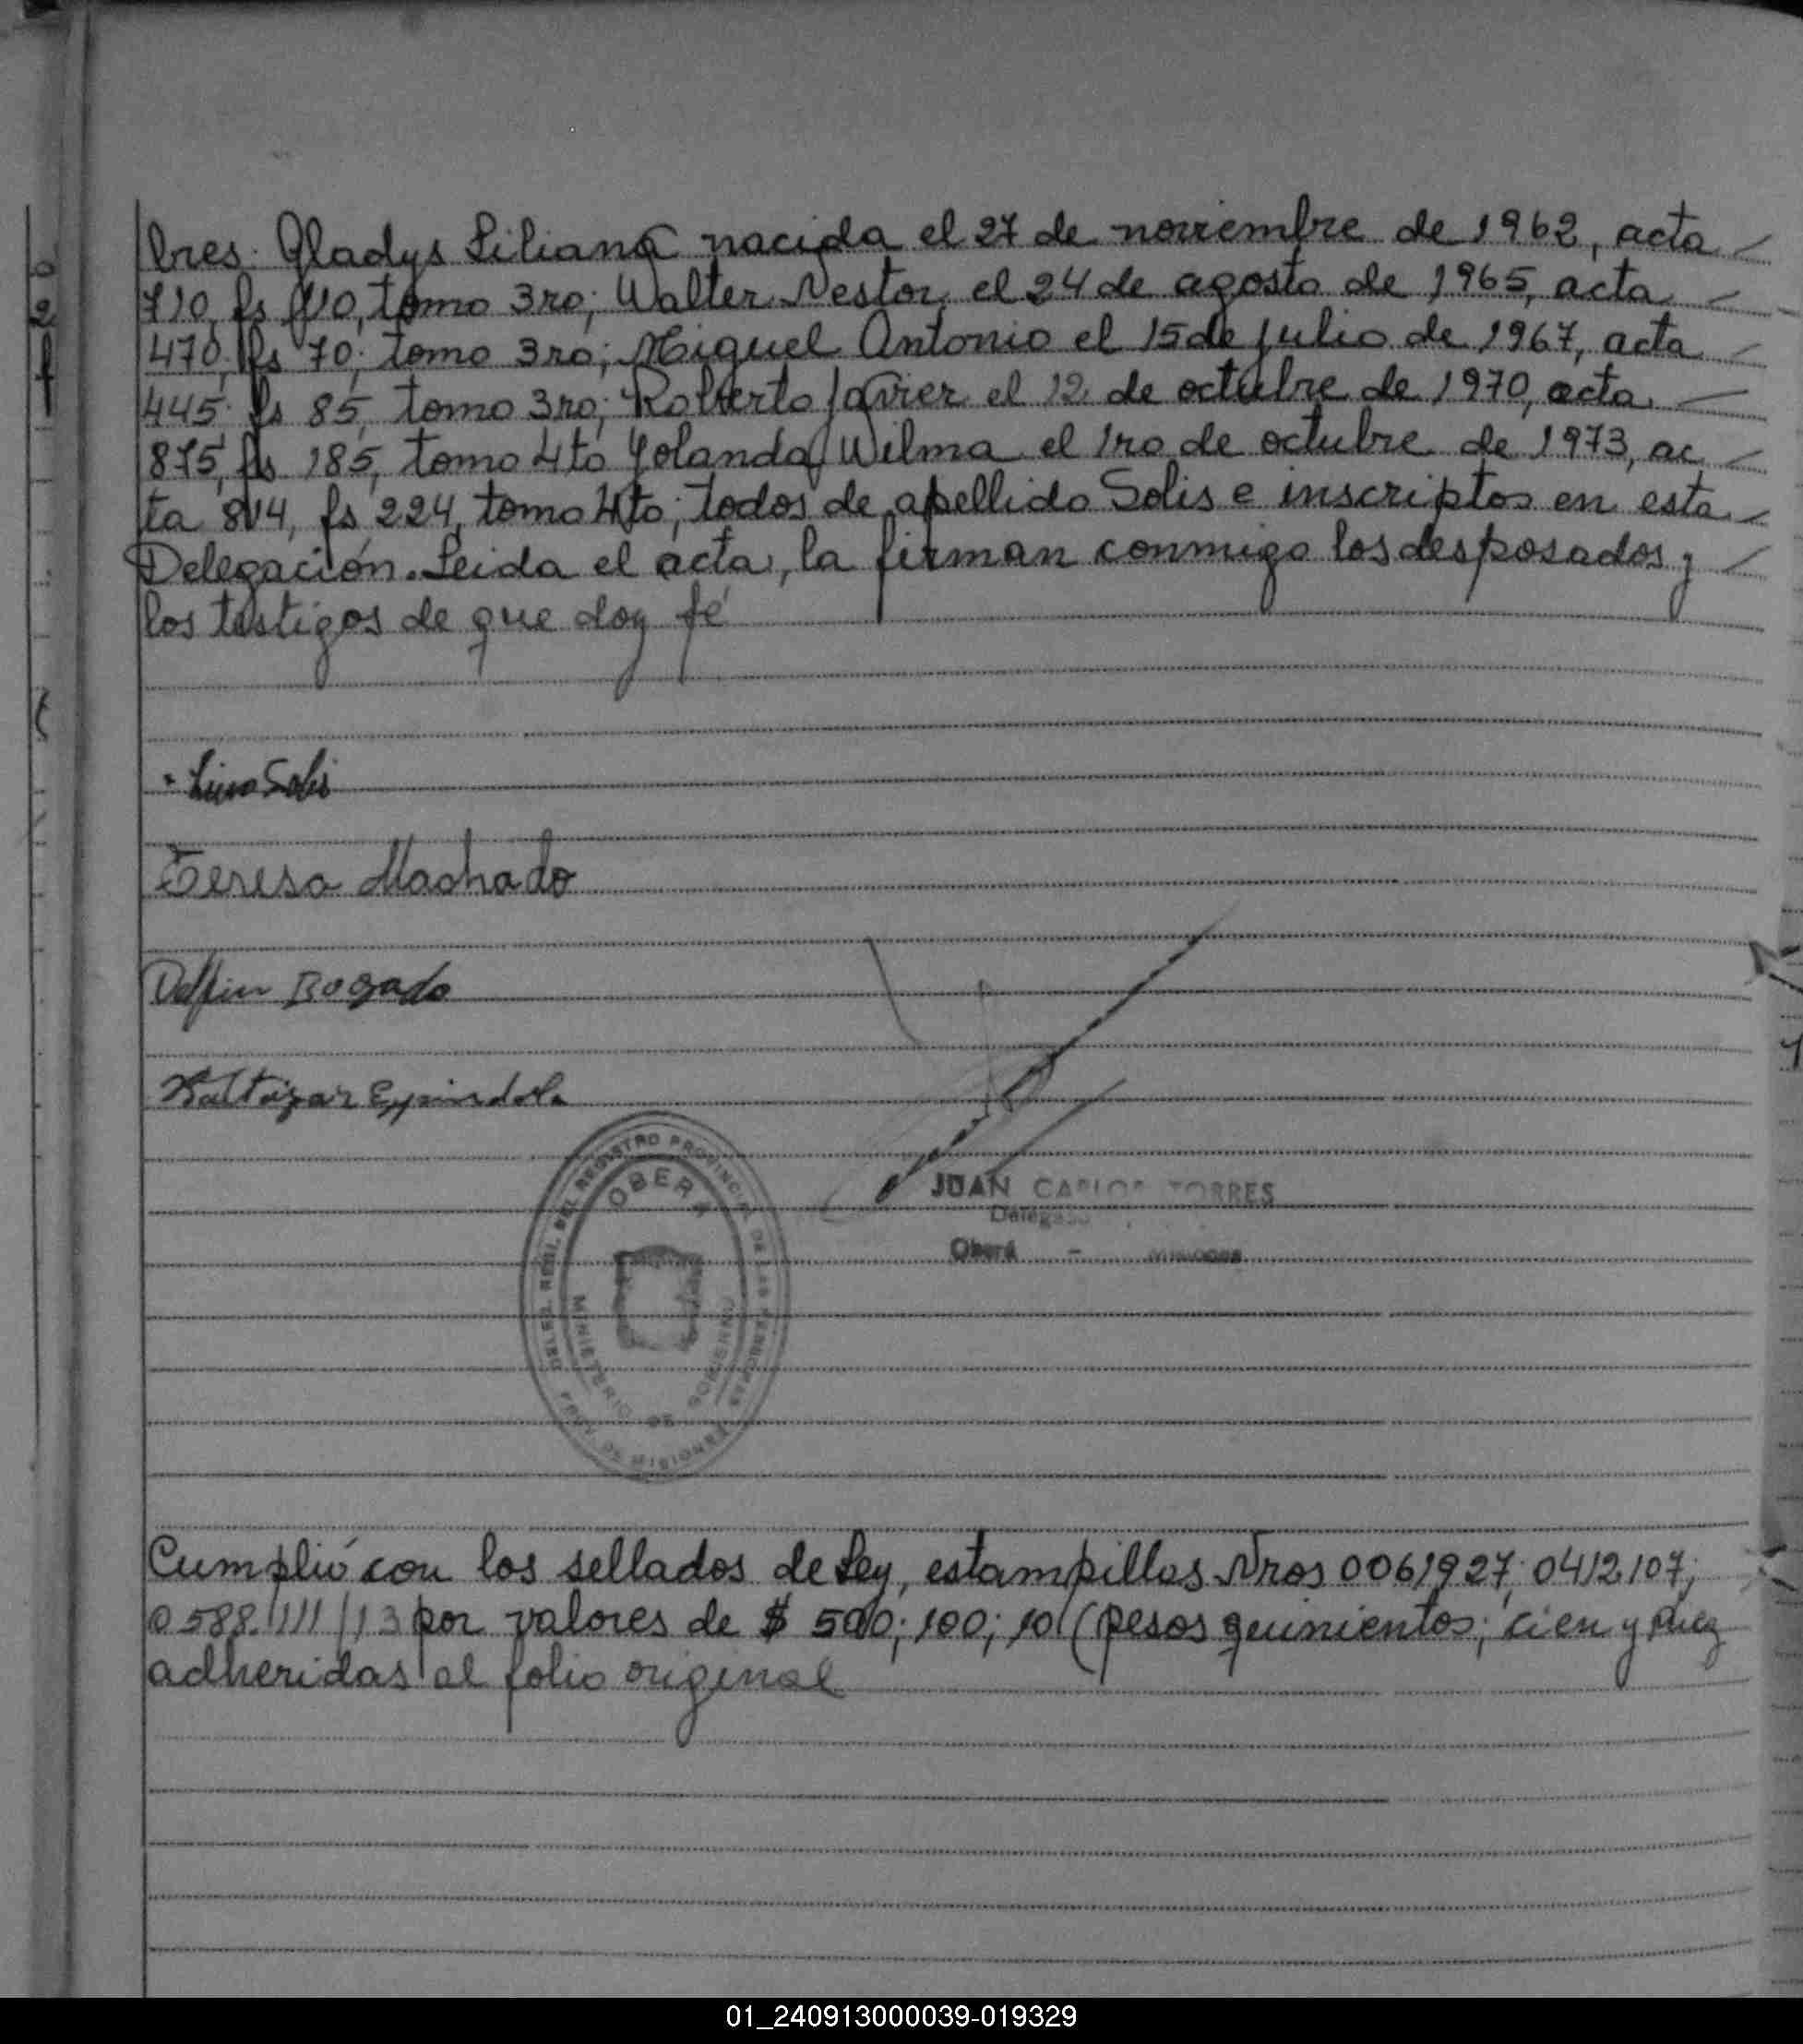 bres: Gladys Liliana nacida el 27 de noviembre de 1962, acta
710, fs 110, tomo 3ro; Walter Nestor, el 24 de agosto de 1965, acta
470, fs 70, tomo 3ro; Miguel Antonio el 15 de julio de 1967, acta
445, fs 85, tomo 3ro; Roberto Javier el 12 de octubre de 1970, acta
875, fs 185, tomo 4to Yolanda Wilma el 1ro de octubre de 1973, ac
ta 814, fs 224, tomo 4to; todos de apellido Solis e inscriptos en esta
Delegación. Leida el acta, la firman conmigo los desposados y
los testigos de que doy fé
Lino Solis
Teresa Machado
Delfin Bogado
Baltazar Espindola
DELEG. REGL. DEL REGISTRO PROVINCIAL DE LAS PERSONAS
OBERA
MINISTERIO DE GOBIERNO
PROV. DE MISIONES
JUAN CARLOS TORRES
Delegado
Oberá - Misiones
Cumplió con los sellados de Ley, estampillas Nros 0061927; 0412107;
0588.111/13 por valores de $ 500; 100; 10 (pesos quinientos; cien y diez
adheridas al folio original
01_240913000039-019329